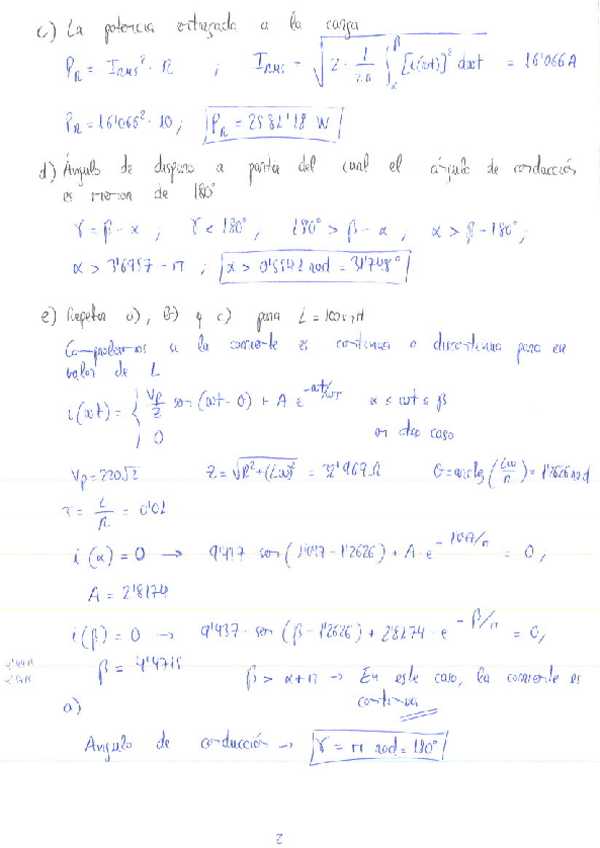 c) La potencia entregada a la carga
P_R = I_RMS² · R ; I_RMS = √(2 · 1/2π ∫_α^β [i(ωt)]² dωt) = 16'066 A
P_R = 16'066² · 10 ; P_R = 2581'18 W
d) Ángulo de disparo a partir del cual el ángulo de conducción
es menor de 180°
γ = β - α , γ < 180° , 180° > β - α , α > β - 180° ;
α > 3'6957 - π ; α > 0'5541 rad = 31'748°
e) Repetir a), b) y c) para L = 100 mH
Comprobamos si la corriente es continua o discontinua para ese
valor de L
i(ωt) = { Vp/Z sen (ωt - θ) + A e^(-ωt/ωτ) α ≤ ωt ≤ β
0 en otro caso
Vp = 220√2 Z = √(R² + (Lω)²) = 32'969 Ω θ = arctg (Lω/R) = 1'2626 rad
τ = L/R = 0'01
i(α) = 0 → sen (1'047 - 1'2626) + A · e^(-1'047/π) = 0 ,
A = 2'8174
i(β) = 0 → 9'437 · sen (β - 1'2626) + 2'8174 · e^(-β/π) = 0 ,
β = 4'4715 β > α + π → En este caso, la corriente es
continua
a)
Angulo de conducción → γ = π rad = 180°
2